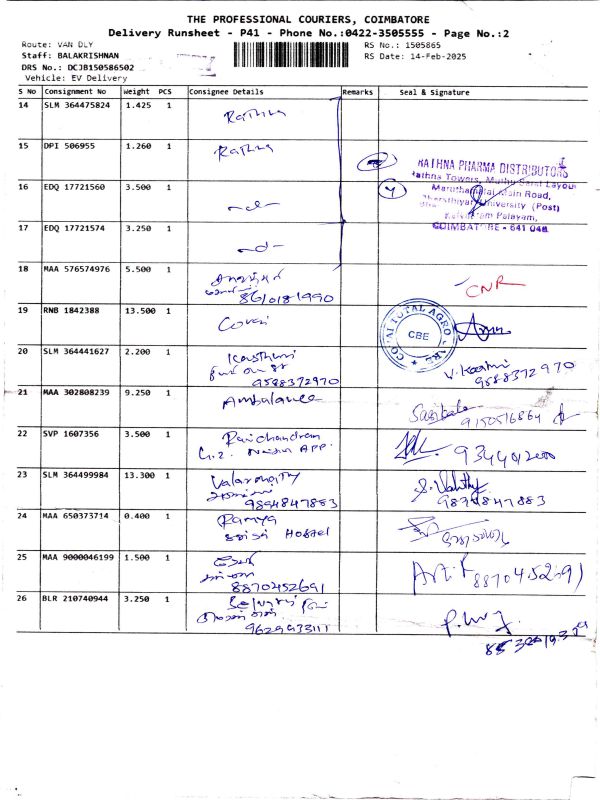 THE PROFESSIONAL COURIERS, COIMBATORE
Delivery Runsheet - P41 - Phone No.:0422-3505555 - Page No.:2
Route: VAN DLY
Staff: BALAKRISHNAN
DRS No.: DCJB150586502
Vehicle: EV Delivery
RS No.: 1505865
RS Date: 14-Feb-2025
S No Consignment No Weight PCS Consignee Details Remarks Seal & Signature
14 SLM 364475824 1.425 1 Rathna
15 DPI 506955 1.260 1 Rathna
RATHNA PHARMA DISTRIBUTORS
Rathna Towers,
16 EDQ 17721560 3.500 1 -do-
4
Main Road,
University (Post)
17 EDQ 17721574 3.250 1 -d-
COIMBATORE - 641 046
18 MAA 576574976 5.500 1
8610181990
CNR
19 RNB 1842388 13.500 1 Covai
COVAI TOTAL AGRO CARE
CBE
20 SLM 364441627 2.200 1 Kasthuri
9588372970
9588372970
21 MAA 302808239 9.250 1 Ambalance
9150516864
22 SVP 1607356 3.500 1 Ravichandran
9344012000
23 SLM 364499984 13.300 1 Valarmathy
9894847883
9894847883
24 MAA 650373714 0.400 1 Ramya
Hostel
25 MAA 9000046199 1.500 1
8870452691
8870452691
26 BLR 210740944 3.250 1
9629933111